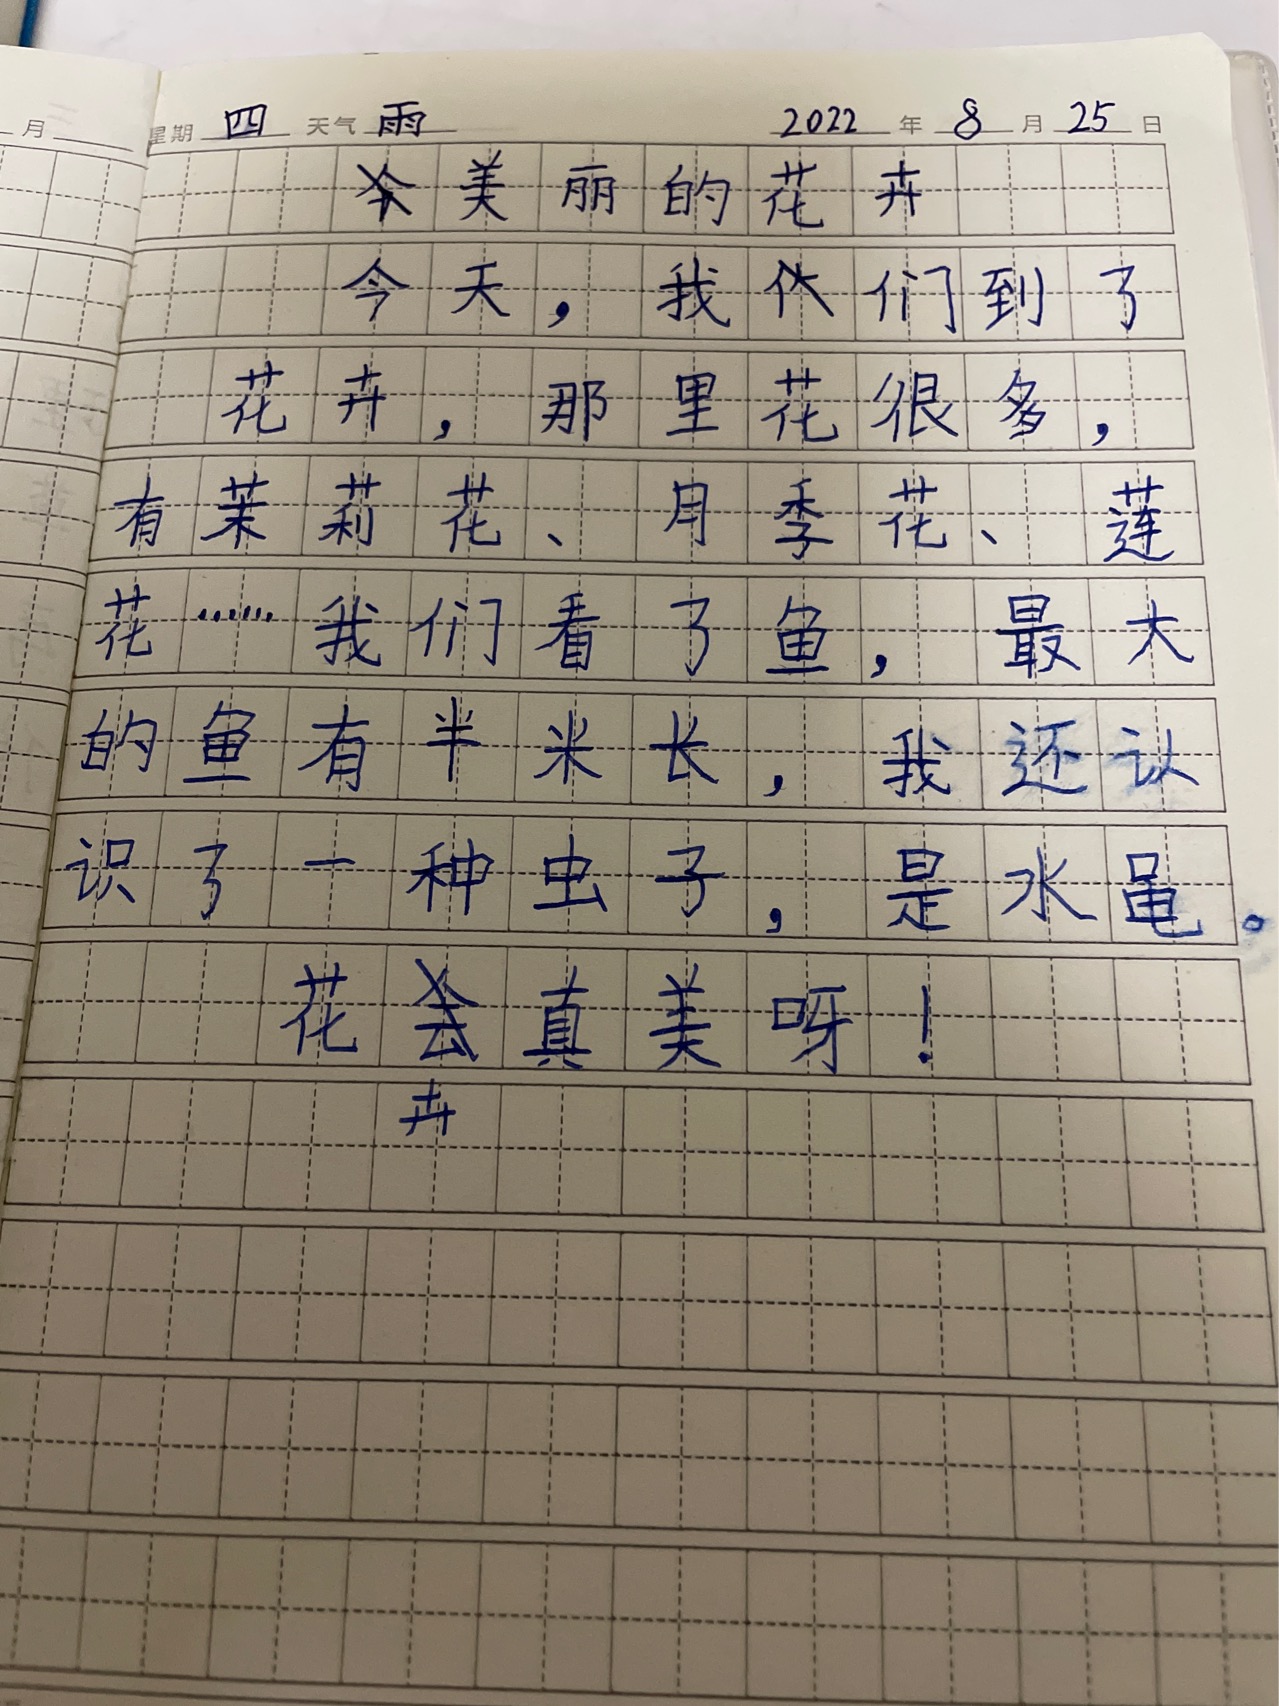 月 星期 四 天气 雨 2022 年 8 月 25 日
美丽的花卉
今天，我们到了
花卉，那里花很多，
有茉莉花、月季花、莲
花……我们看了鱼，最大
的鱼有半米长，我还认
识了一种虫子，是水黾。
花真美呀！
卉